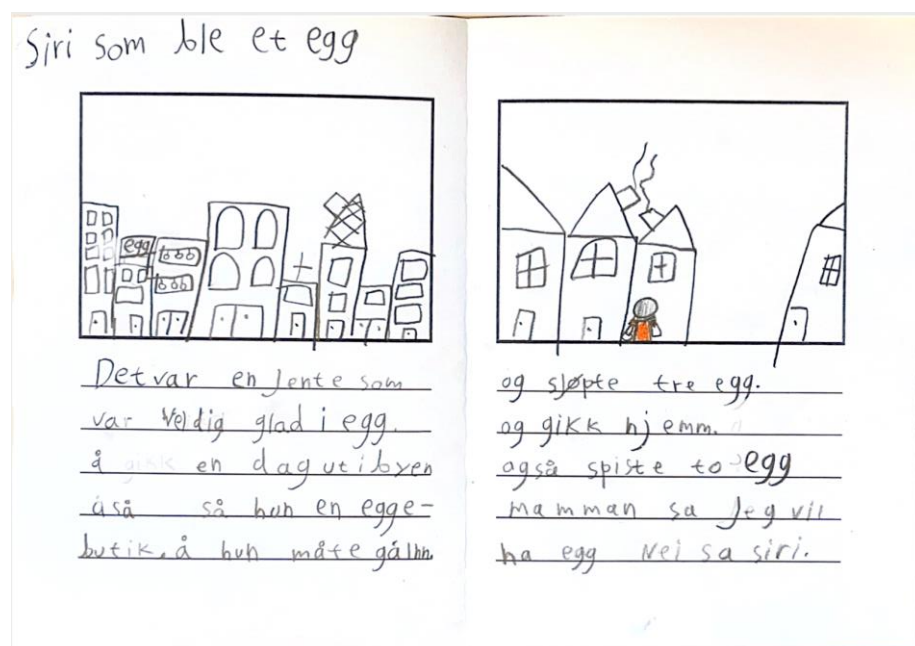 Siri som ble et egg
egg
Det var en jente som
var veldig glad i egg.
å gikk en dag ut i byen
åså så hun en egge-
butik. å hun måte gå inn.
og sjøpte tre egg.
og gikk hjemm.
også spiste to egg
mamman sa jeg vil
ha egg Nei sa siri.